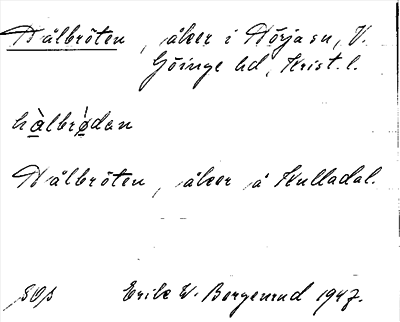 Hålbröten, åker i Nörja sn, V.
Göinge hd, Krist. l.
hàlbrǿdan
Hålbröten, åker å Kulladal.
SOp Erik W. Borgenrud 1947.